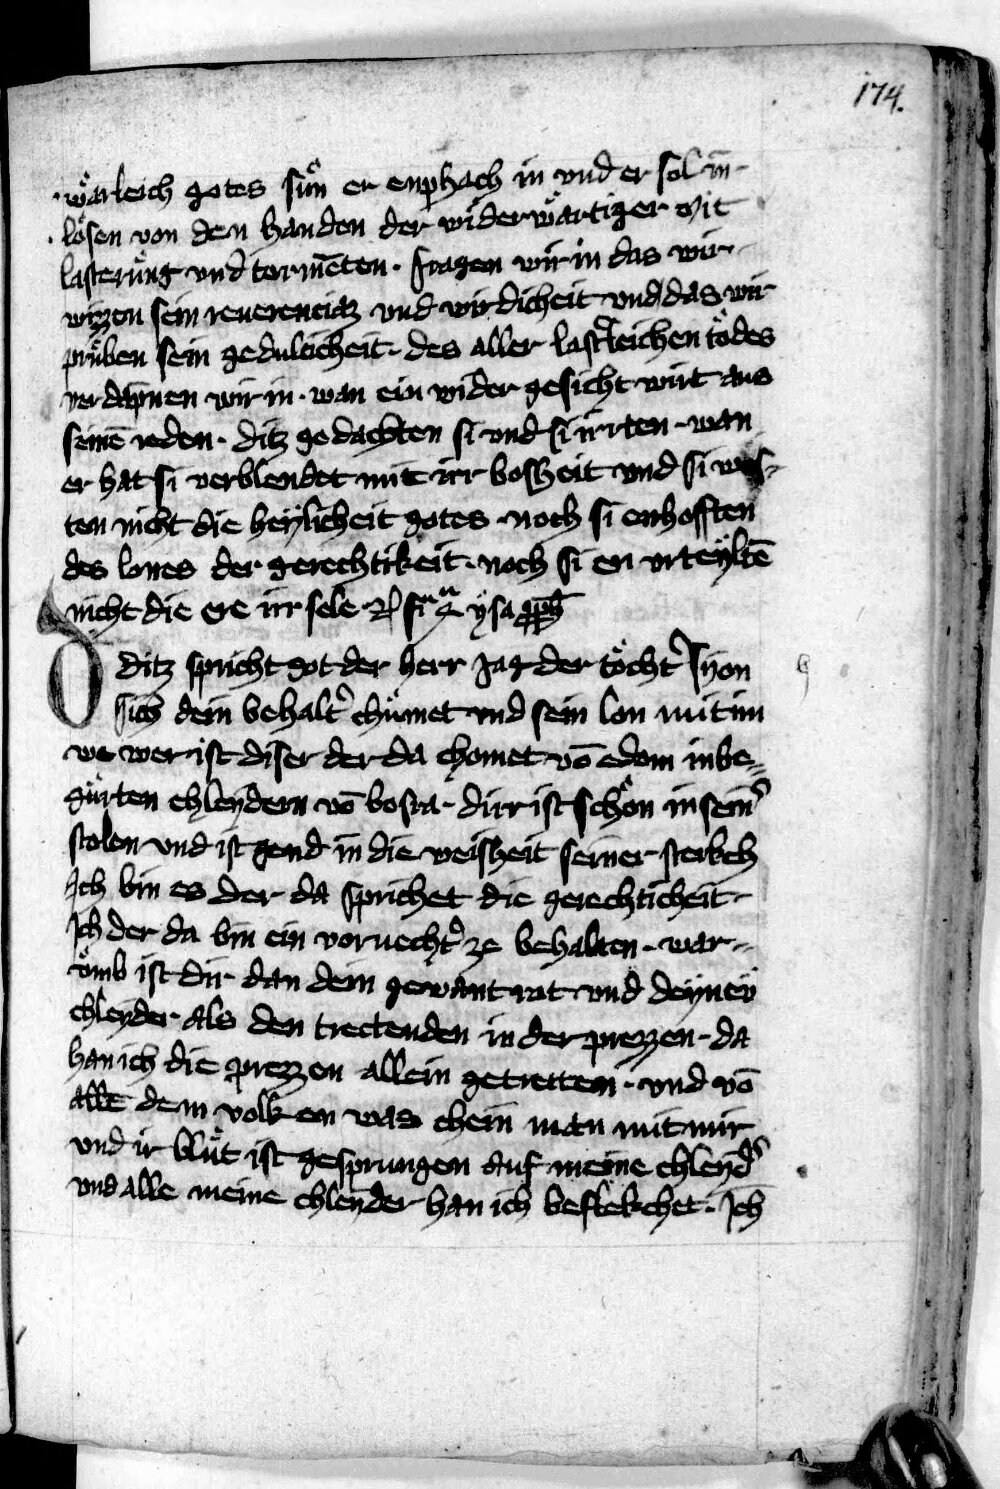 174.
wärleich gotes sün er enphach in und er sol in
lösen von den handen der widerwärtiger Mit
lasterüng und tormēten. fragen wir in das wir
wizzen sein reuerenciaz und wirdicheit und das wir
prüben sein geduleicheit. des aller lastleichen tödes
verdapnen wir in. wan ein wider gesicht wirt aus
seinē reden. ditz gedachten si und si irrten. wan
er hat si verblendet mit irr boshait und si wes-
ten nicht die heÿlicheit gotes. noch si enhofften
des lones der gerechtikeit. noch si en urteÿltē
nicht die ere irr sele ysa
Ditz spricht got der herr sag der töcht' syon
sich dein behalt' chümet und sein lon mit im
we wer ist diser der da chomet vō edom in be=
gürten chleydern vō bosra. dirr ist schön in sein'
stolen und ist gend in die weisheit seiner sterkch
Ich bin es der da sprichet die gerechticheit.
Ich der da bin ein vorvecht' ze behalten. war=
ümb ist dir dan dein gewant rot und deÿneu
chleÿder. als den trettenden in der prezzen. da
han ich die prezzen allein getretten. und vō
allē dem volk en was chein man mit mir
und ir blüt ist gesprungen auf meine chleÿd'
und alle meine chleyder han ich beflekchet. Ich